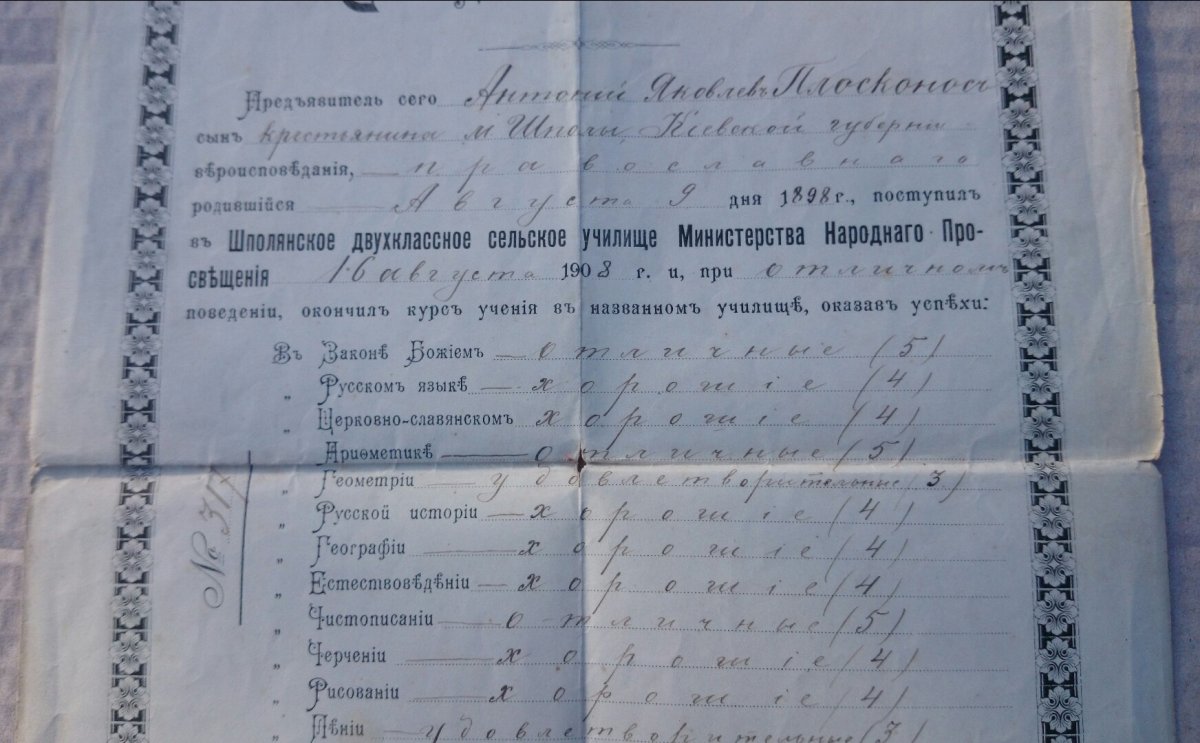 Предъявитель сего Антоній Яковлевъ Плосконосъ
сынъ крестьянина м Шполы, Кіевской губерніи
вѣроисповѣданія, православнаго
родившійся Августа 9 дня 1898 г., поступилъ
въ Шполянское двухклассное сельское училище Министерства Народнаго Про-
свѣщенія 16 августа 1908 г. и, при отличномъ
поведеніи, окончилъ курсъ ученія въ названномъ училищѣ, оказавъ успѣхи:
Въ Законѣ Божіемъ — отличные (5)
„ Русскомъ языкѣ — хорошіе (4)
„ Церковно-славянскомъ хорошіе (4)
„ Ариѳметикѣ — отличные (5)
„ Геометріи — удовлетворительные (3)
„ Русской исторіи — хорошіе (4)
„ Географіи — хорошіе (4)
„ Естествовѣдѣніи — хорошіе (4)
„ Чистописаніи — отличные (5)
„ Черченіи — хорошіе (4)
„ Рисованіи — хорошіе (4)
„ Пѣніи — удовлетворительные (3)
№ 317